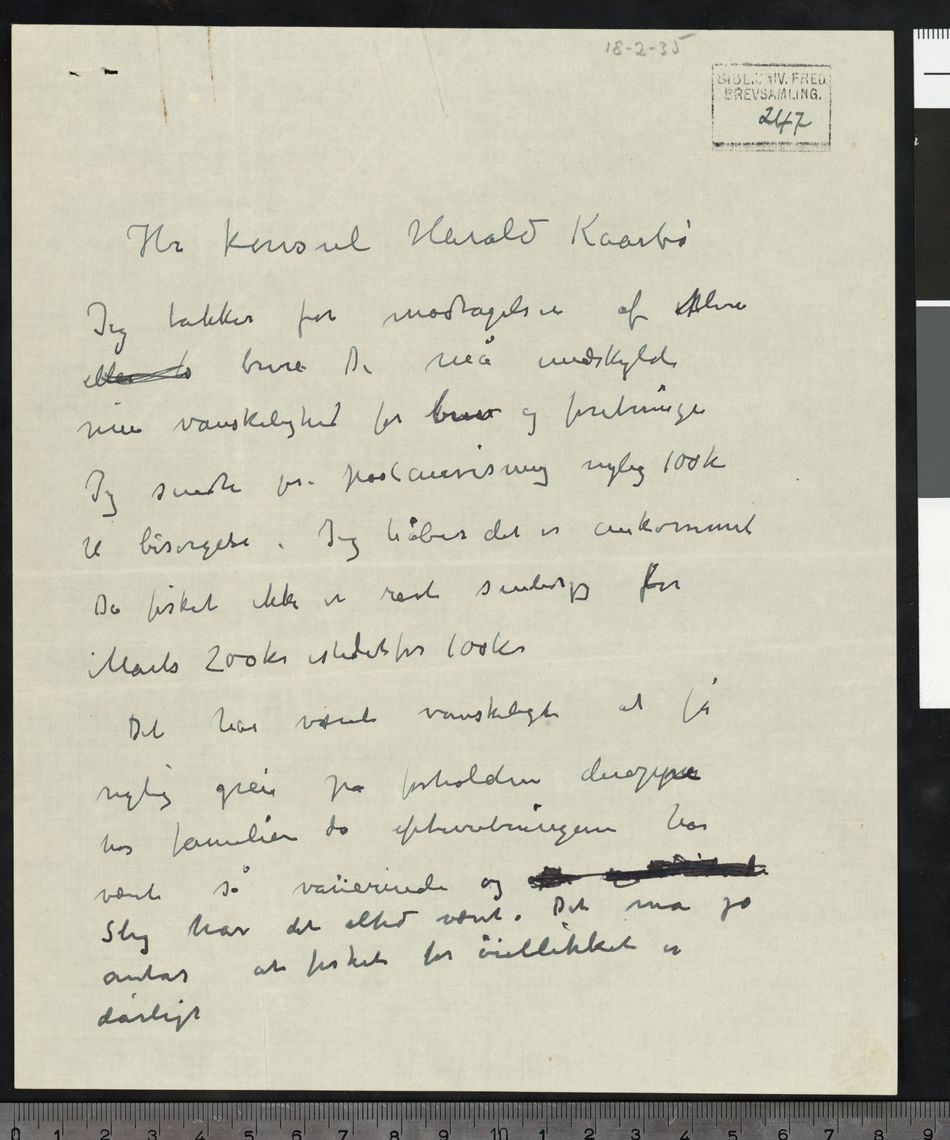 18-2-35
BIBL. UNIV. FRED.
BREVSAMLING.
247
Hr Konsul Harald Kaarbø
Jeg takker for modtagelsen af flere
eller to breve De må undskylde
min vanskelighed for brev og foretninger
Jeg sendte pr. postanvisning nylig 100k
til besørgelse. Jeg håber det er ankommet
Da fisket ikke er rart sender jeg for
Marts 200kr istedetfor 100kr
Det har været vanskeligt at få
nylig greie på forholdene deroppe
hos familien da efterretningene har
været så varierende og
Slig har det altid været. Det må jo
antas at fisket for øieblikket er
dårligt